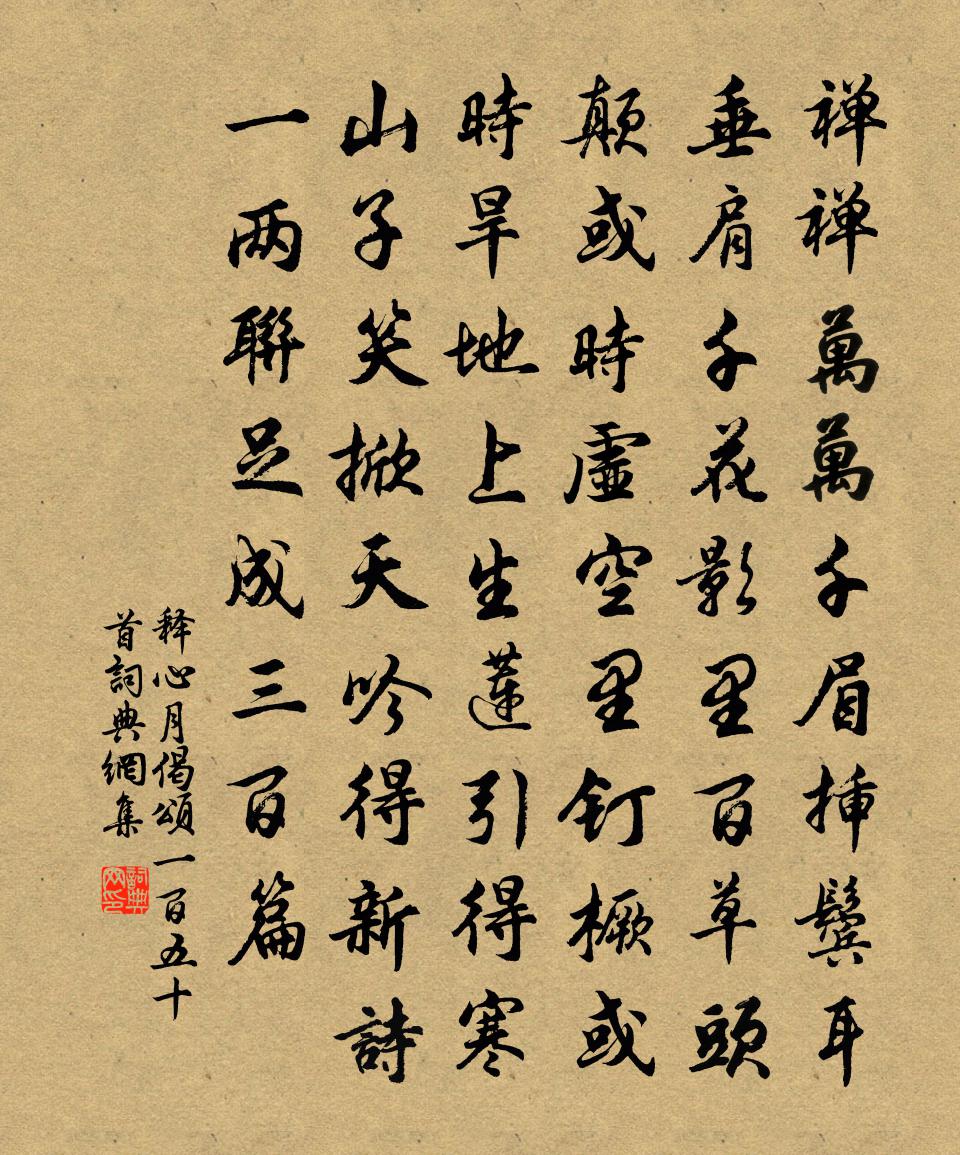 禅禅萬萬千眉挿鬓耳
垂肩千花影里百草頭
颠或時虛空里钉橛或
時旱地上生蓮引得寒
山子笑掀天吟得新詩
一两聯足成三百篇
释心月偈頌一百五十
首詞典網集